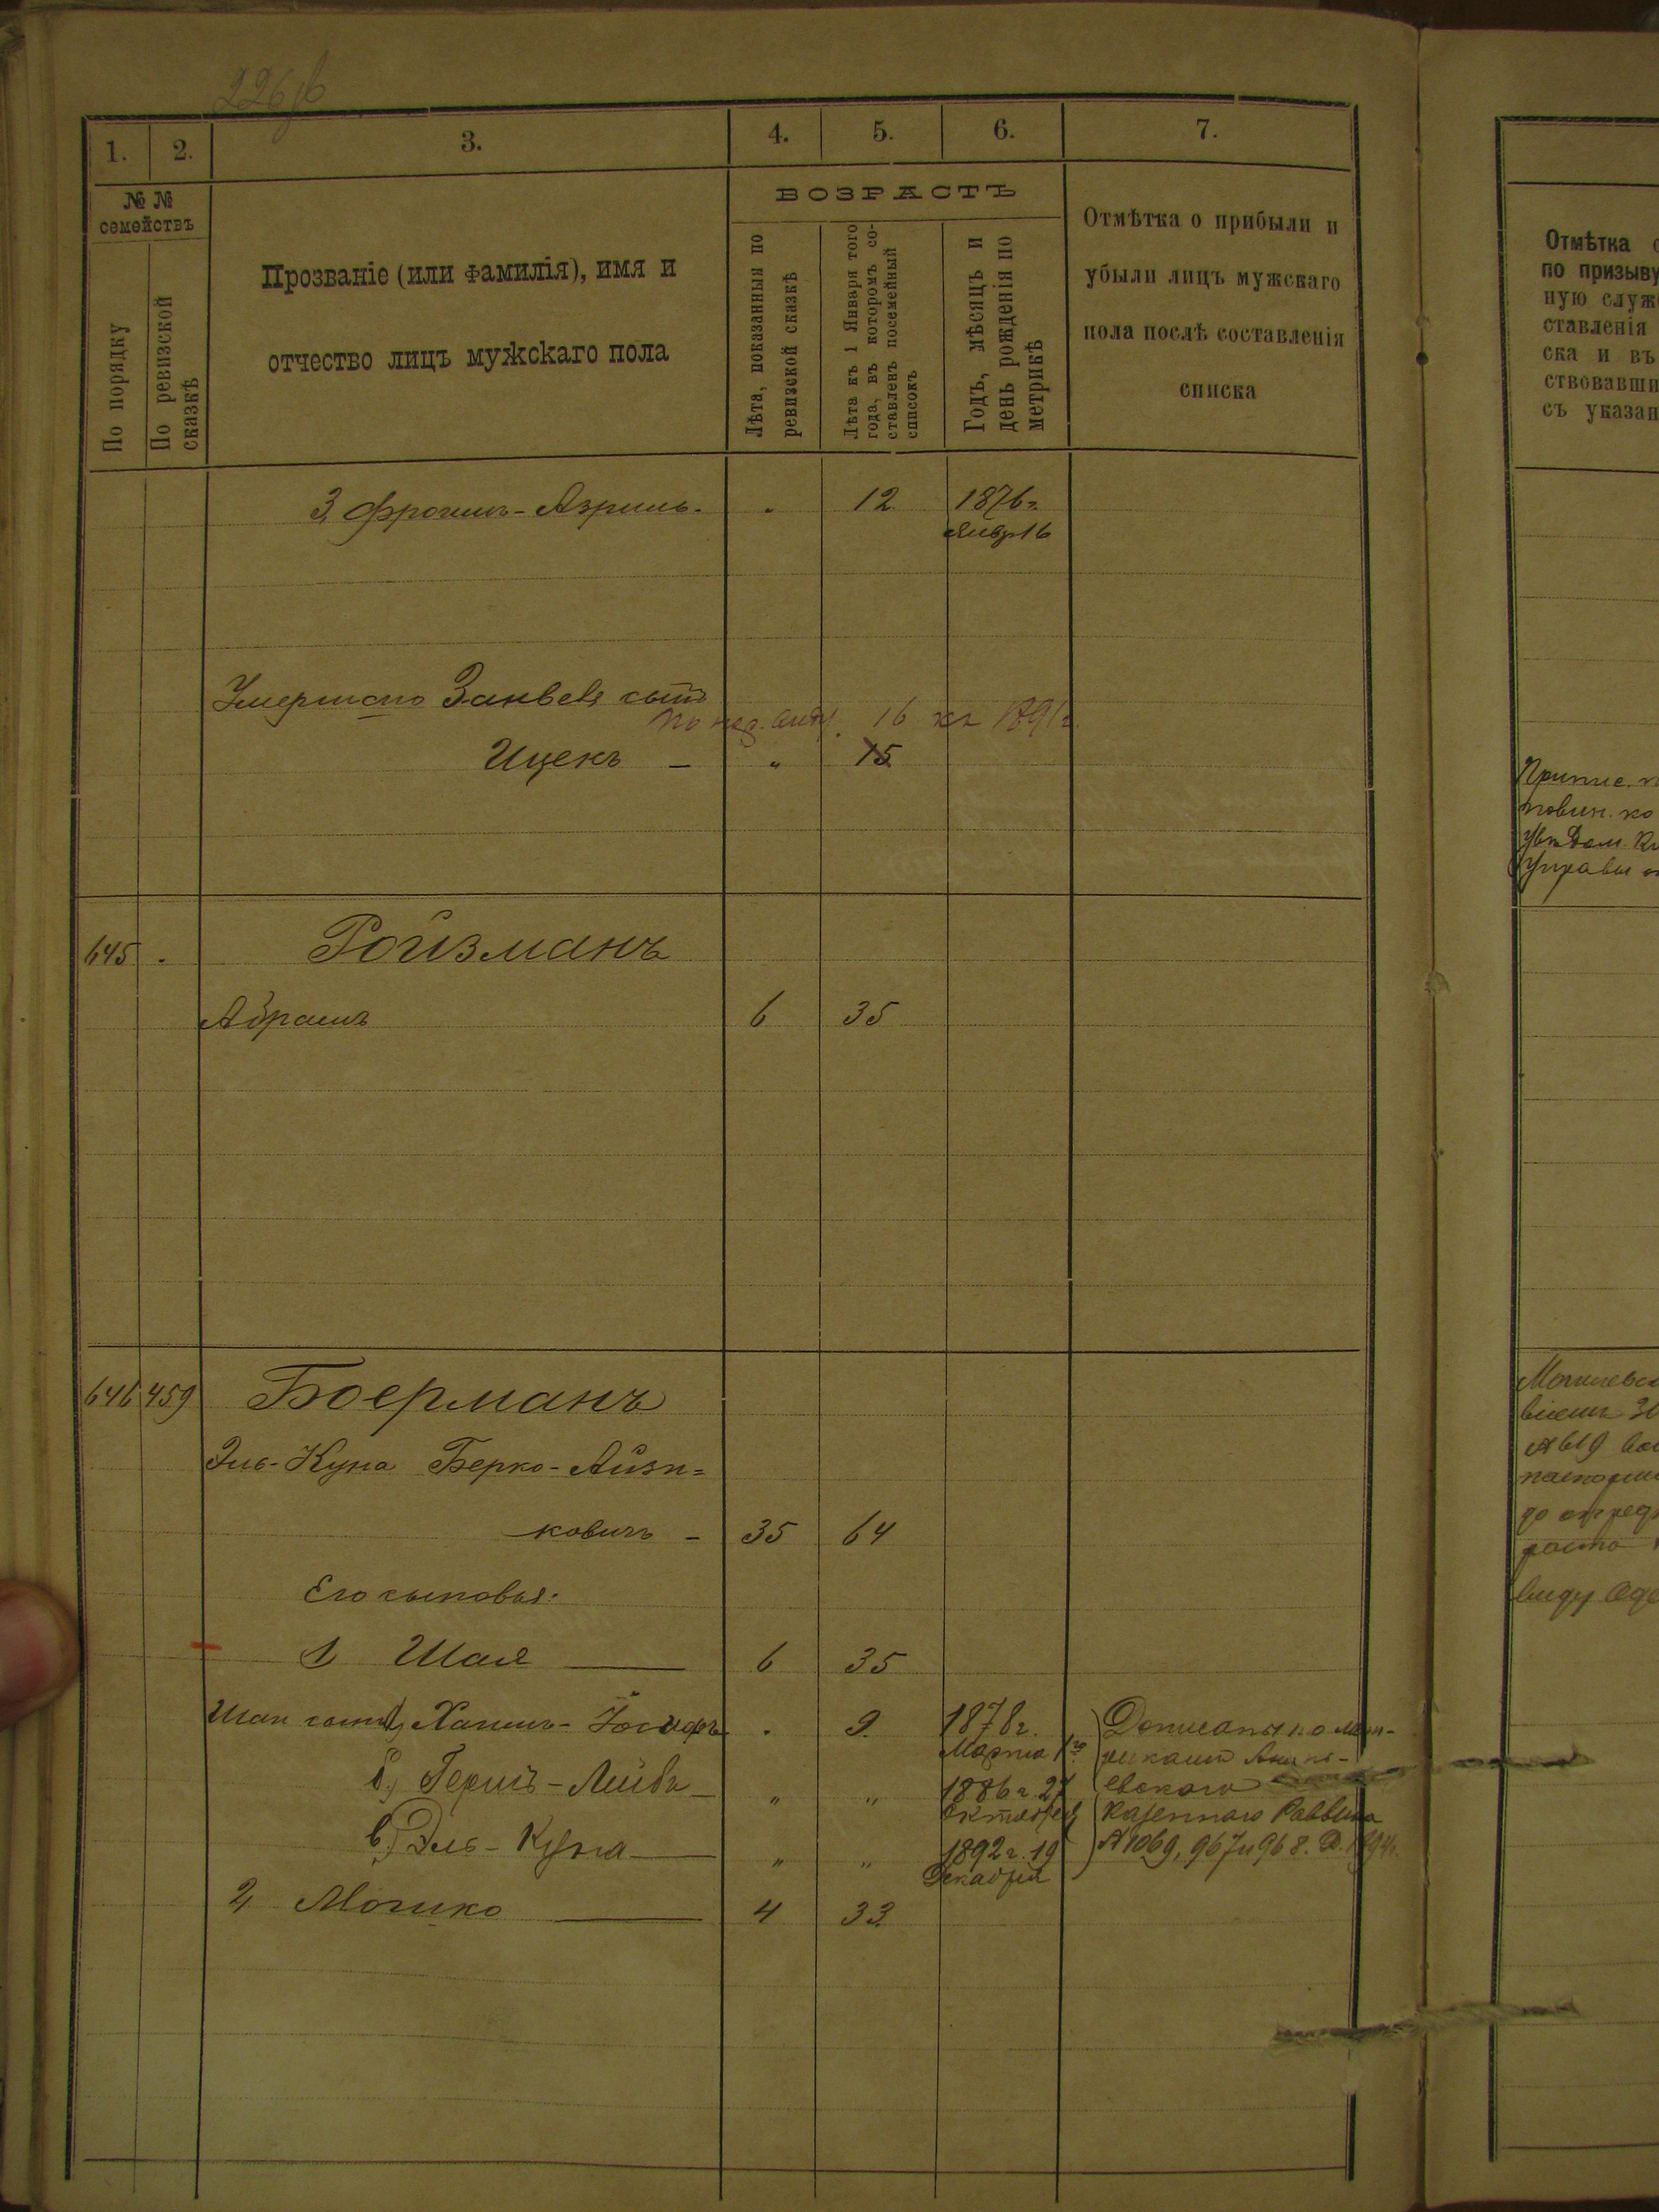 226 об
1. 2. 3. 4. 5. 6. 7.
№ №
семействъ
По порядку
По ревизской
сказкѣ
Прозваніе (или фамилія), имя и
отчество лицъ мужскаго пола
ВОЗРАСТЪ
Лѣта, показанныя по
ревизской сказкѣ
Лѣта къ 1 Января того
года, въ которомъ со-
ставленъ посемейный
списокъ
Годъ, мѣсяцъ и
день рожденія по
метрикѣ
Отмѣтка о прибыли и
убыли лицъ мужскаго
пола послѣ составленія
списка
3, Фроимъ-Азриль. " 12. 1876 г.
Январ 16
Умершаго Занвеля сынъ
16 къ 1891 г.
Ицекъ — " 15
645 . Ройзманъ
Абрамъ 6 35
646 459 Боерманъ
Эль-Куна Берко-Айзи=
ковичъ — 35 64
Его сыновья:
1 Шая — 6 35
Шаи сыны, Хаимъ-Іосифъ . 9. 1878 г.
Марта 1го
б.) Гершъ-Лейбъ — " " 1886 г. 27
Октября
в.) Эль-Куна — " " 1892 г. 19
Декабря
Дописаны по мет-
рикамъ
евскаго
Казеннаго Раввина
№ 1069, 967 и 968.
2, Мошко — 4 33.
Отмѣтка
по призыву
ную служ
ставленія
ска и въ
ствовавши
съ указан
Припис.
повин. ко
Управы
Могилевс
№ 619
виду